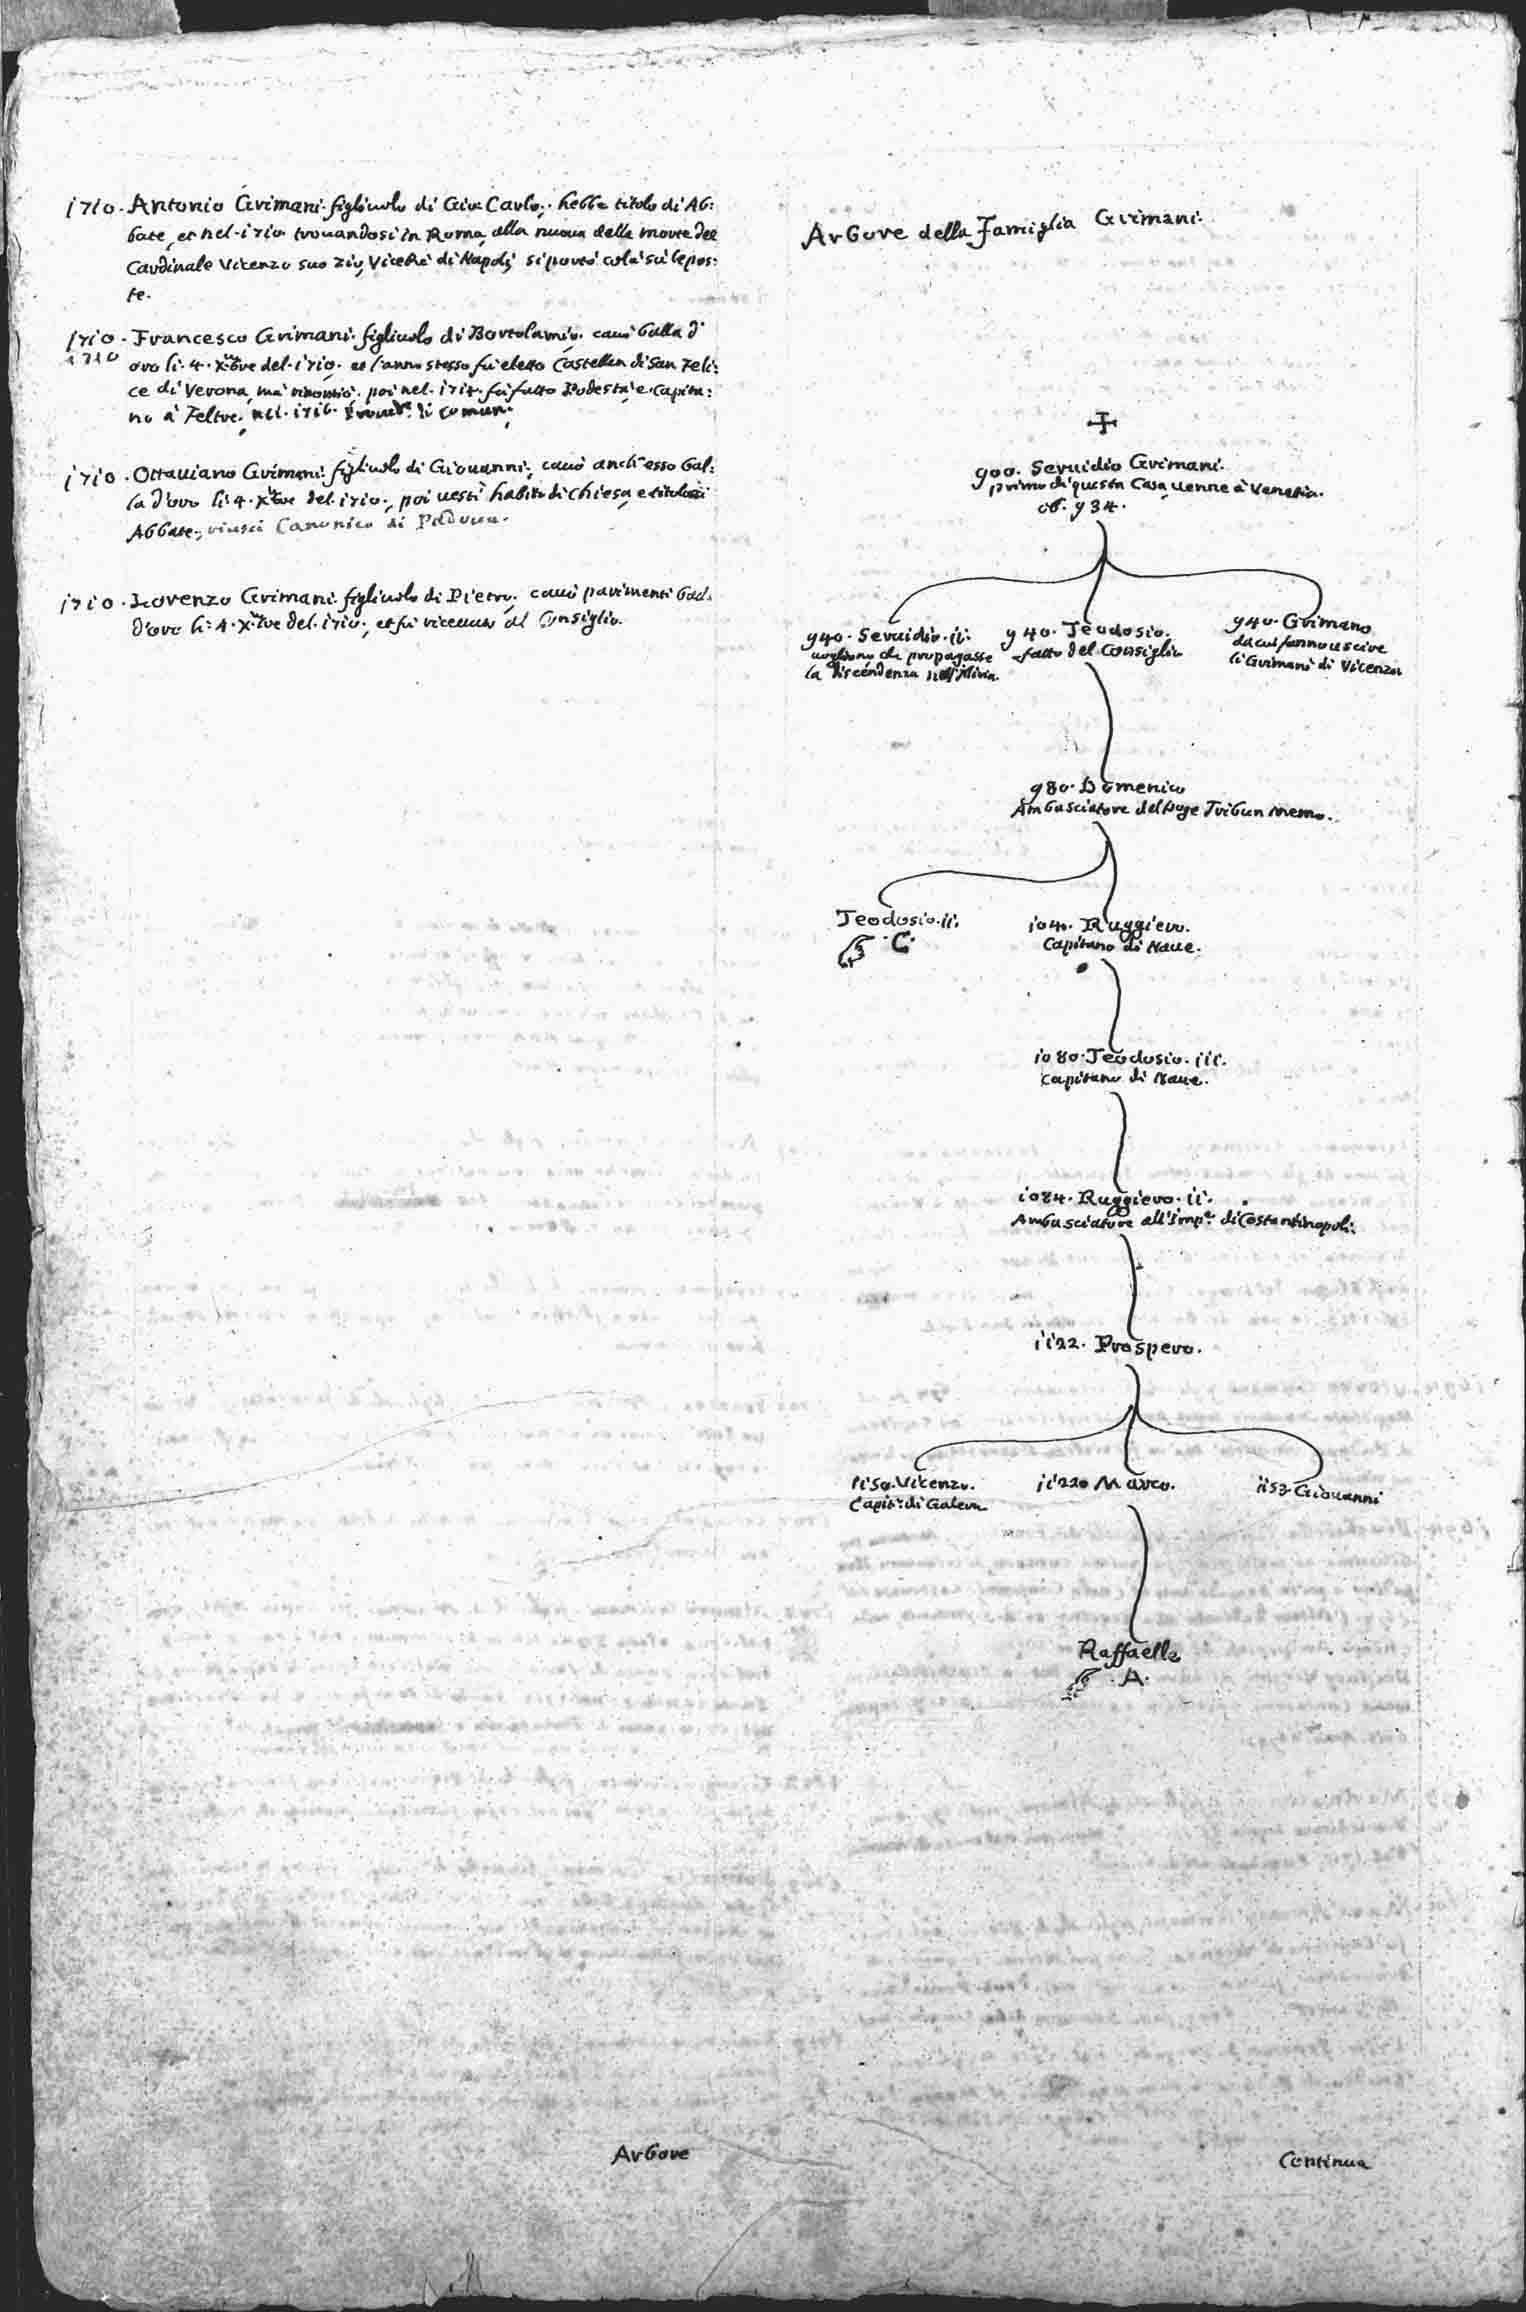 1710. Antonio Grimani figliuolo di Gio: Carlo, hebbe titolo di Ab:
bate, et nel 1710 trouandosi in Roma, alla nuoua della morte del
Cardinale Vicenzo suo zio, ViceRè di Napoli, si portò colà sù le pos:
te.
1710. Francesco Grimani figliuolo di Bortolamio, cauò balla d'
1710
oro li 4. Xbre del 1710. et l'anno stesso fù eletto Castellan di San Feli:
ce di Verona, mà rinontiò. poi nel 1714. fù fatto Podestà, e Capita:
no à Feltre, nel 1716. Proued.r di Comun.
1710. Ottauiano Grimani figliuolo di Giouanni, cauò anch'esso bal:
la d'oro li 4. Xbre del 1710., poi uestì habito di Chiesa, e titolossi
Abbate, riuscì Canonico di Padoua.
1710. Lorenzo Grimani figliuolo di Pietro, cauò parimenti bal.
d'oro li 4. Xbre del 1710., et fù riceuuto al Consiglio.
Arbore
Arbore della Famiglia Grimani.
900. Seruidio Grimani.
primo di questa Casa uenne à Venetia.
ob. 934.
940. Seruidio. ii.
uogliono che propagasse
la discendenza nell'Istria.
940. Teodosio.
fatto del Consiglio
940. Grimano
da cui fanno uscire
li Grimani di Vicenza
980. Domenico
Ambasciatore del Doge Tribun Memo.
Teodosio. ii.
C.
1040. Ruggiero.
Capitano di Naue.
1080. Teodosio. iii.
Capitano di Naue.
1084. Ruggiero. ii.
Ambasciatore all'Imp.e di Costantinopoli.
1122. Prospero.
1150. Vicenzo.
Capit.o di Galera
1122. Marco.
1153. Giouanni
Raffaelle
A.
Continua